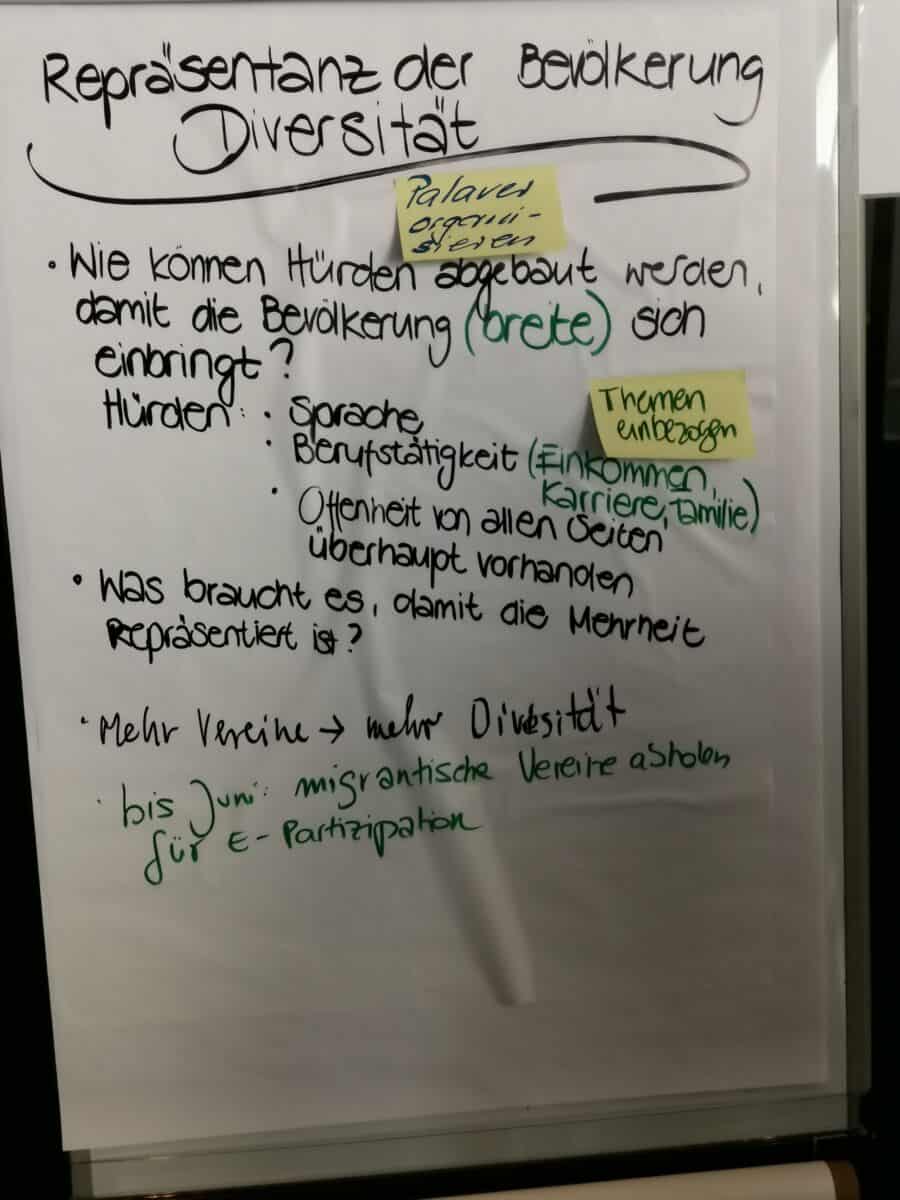 Repräsentanz der Bevölkerung
Diversität
Palaver
organi-
sieren
• Wie können Hürden abgebaut werden,
damit die Bevölkerung (breite) sich
einbringt?
Hürden: • Sprache
• Berufstätigkeit (Einkommen,
Karriere, Familie)
Themen
einbezogen
• Offenheit von allen Seiten
überhaupt vorhanden
• Was braucht es, damit die Mehrheit
Repräsentiert ist?
• Mehr Vereine → mehr Diversität
• bis Juni: migrantische Vereine abholen
für E-Partizipation